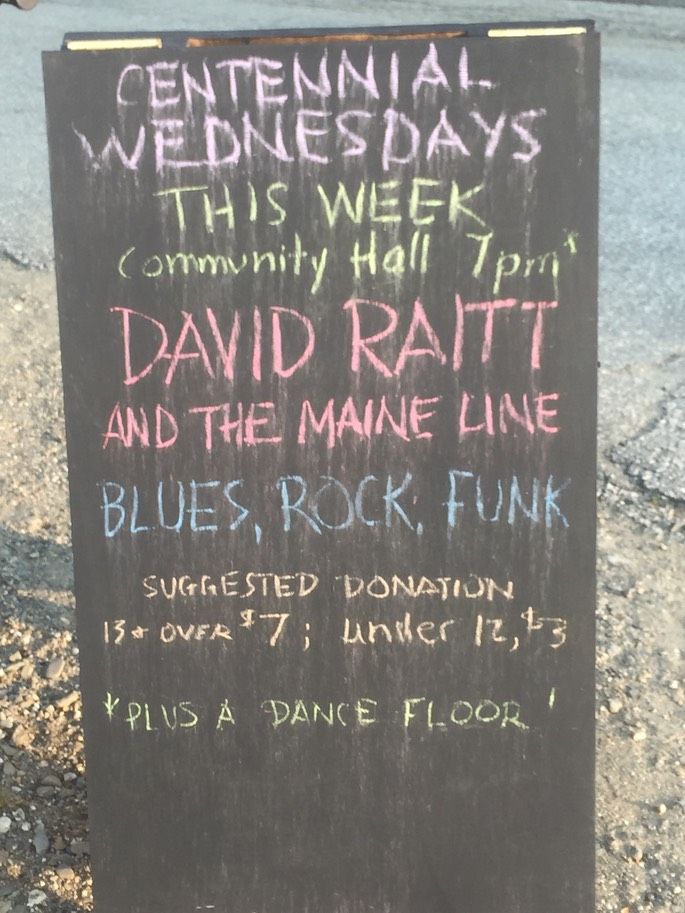 CENTENNIAL
WEDNESDAYS
THIS WEEK
Community Hall 7pm*
DAVID RAITT
AND THE MAINE LINE
BLUES, ROCK, FUNK
SUGGESTED DONATION
13+ OVER $7; under 12, $3
*PLUS A DANCE FLOOR!